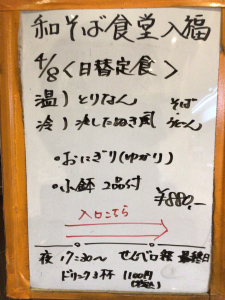 和そば食堂入福
4/8<日替定食>
温)とりなん そば
冷)冷したぬき風 うどん
・おにぎり(ゆかり)
・小鉢 2品付
¥880,-
入口こちら
夜 17:30〜 せんべろ経 最終日
ドリンク3杯 1100円
(税込)